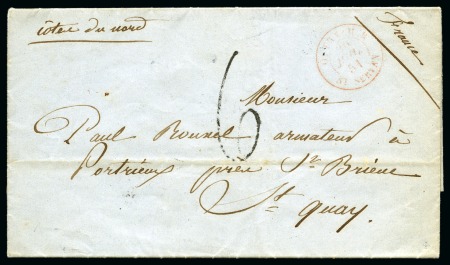 côtes du nord
France
6
Monsieur
Paul Rouxel armateur à
Portrieux près St Brieuc
St quay.